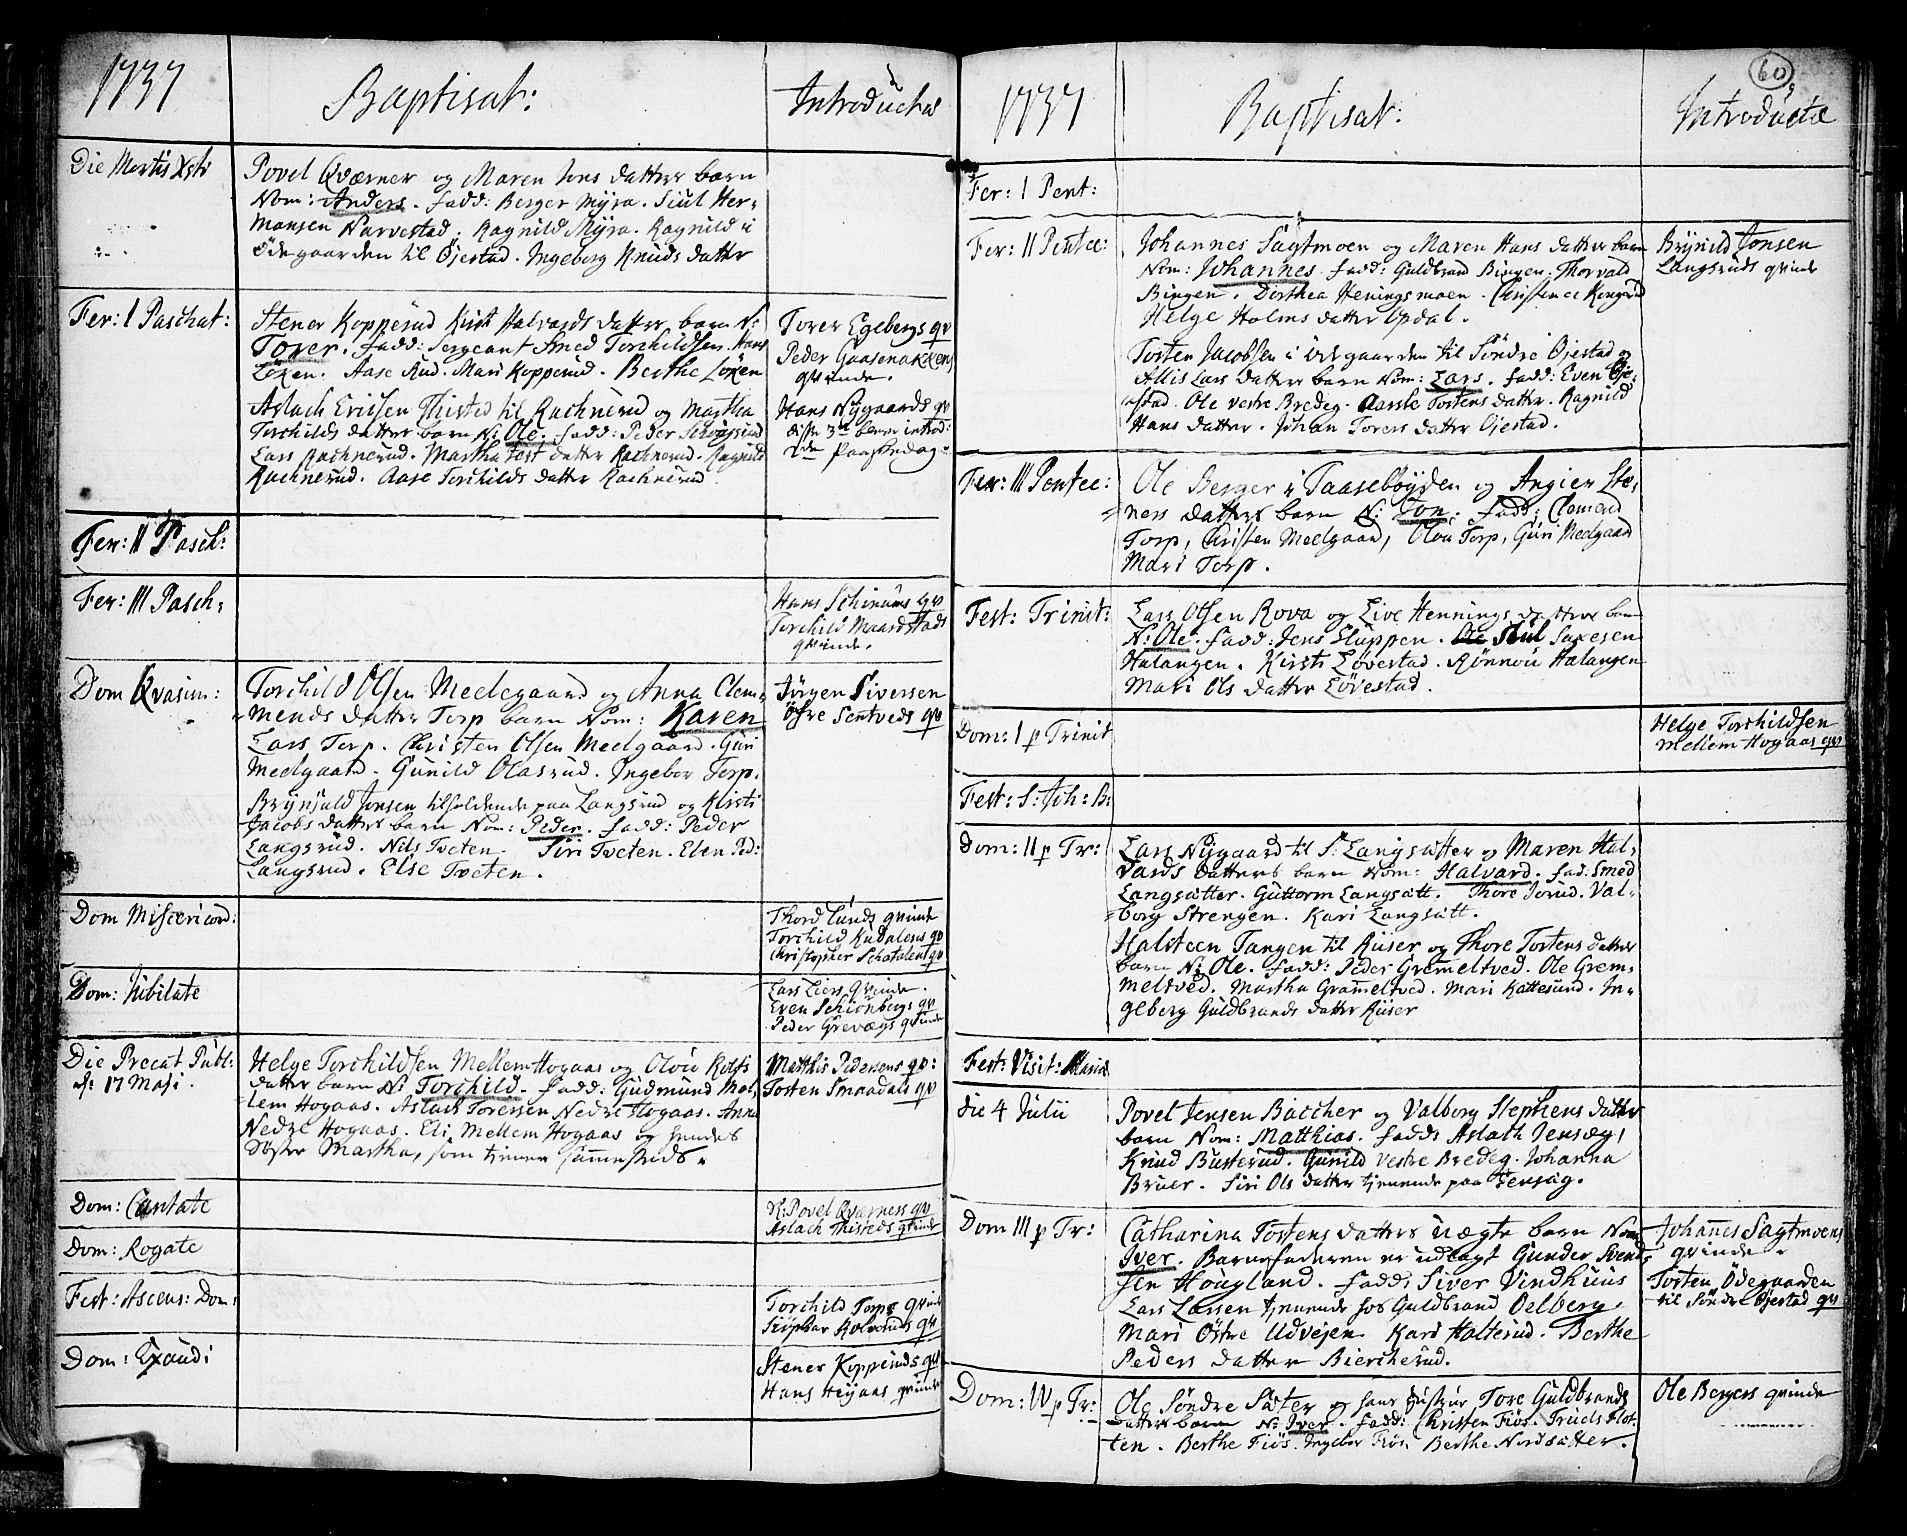 1737
Baptisat:
Introductæ
Die Mortis Xsti
Povel Qværner og Maren Jens datter barn
Nom: Anders. fadd: Berger Myra. Siul Her-
mansen Narvestad. Ragnild Myra. Ragnild i
Ödegaarden til Øjestad. Ingeborg Knuds datter
Fer: I Paschat:
Stener Kopperud Kirsti Halvards datter barn N:
Torer. fadd: Sergeant Smed Torchildsen. Hans
Löken. Aase Rud. Mari Kopperud. Berthe Löken
Aslach Ericsen Thisted til Rachnerud og Martha
Torchilds datter barn N: Ole. fadd: Peder
Lars Rachnerud. Martha datter Rachnerud. Ragnild
Rachnerud. Aase Torchilds datter Rachnerud.
Torer Egebergs qv
Peder Gaasenakkens
qvinde.
Hans Nygaards qv
disse 3de bleve introd:
2den Paaskedag
Fer: II Pasch:
Fer: III Pasch:
Hans Schinnes qv
Torchild Maardstads
qvinde.
Dom Qvasim:
Torchild Olsen Meelgaard og Anna Clem-
mends datter Torp barn Nom: Karen
Lars Torp. Christen Olsen Meelgaard. Guri
Meelgaard. Gunild Olasrud. Ingebor Torp.
Brynjuld Jonsen tilholdende paa Langsrud og Kirsti
Jacobs datter barn Nom: Peder. fadd: Peder
Langsrud. Nils Tveten. Siri Tveten. Elen Ped:
Langsrud. Else Tveten.
Jörgen Siversen
Ösre Sentveds qv
Dom Misericord:
Thord Lunds qvinde
Torchild Kudalens qv
Christopher Schatalens qv
Dom: Jubilate
Lars Liers qvinde.
Even Schiönbergs qv
Peder Grevægs qvinde
Die Precat. Publ:
d: 17 Maji.
Helge Torchildsen Mellem Hogaas og Olöu Rolfs
datter barn N: Torchild. fadd: Gudmund Mel-
lem Hogaas. Aslach Torersen Nedre Hogaas. Anne
Nedre Hogaas. Eli Mellem Hogaas og hendes
Söster Martha, som tjener sammesteds.
Matthis Pedersens qv:
Tosten Smaadals qv
Dom: Cantate
N: Povel Qværners qv
Aslach Thisteds qvinde
Dom: Rogate
Fest: Ascens: Dom:
Torchild Torps qvinde
Dom: Exaudi
Stener Kopperuds qv
Hans Heyaas qvinde
60
1737
Baptisat:
Introductæ
Fer: I Pent:
Fer: II Pentec:
Johannes Sagtmoen og Maren Hans datter barn
Nom: Johannes. fadd: Guldbrand Bingen. Thorvald
Bingen. Dorthea Heningsmoen. Christence Kongerud
Helge Holms datter Updal.
Tosten Jacobsen i Ödegaarden til Söndre Øjestad og
Allis Lars datter barn Nom: Lars. fadd: Even Øje-
stad. Ole vestre Bredeg. Aarste Tostens datter. Ragnild
Hans datter. Johan Torers datter Øjestad.
Brynild Jonsen
Langsruds qvinde
Fer: III Pentec:
Ole Berger i Taasebøyden og Angier Ste-
ners datter barn N: Jon. fadd: Clemend
Torp, Christen Meelgaard, Olöu Torp, Guri Meelgaard
Mari Torp.
Fest: Trinit:
Lars Olsen Rova og Live Hennings datter barn
N: Ole. fadd: Jens Sluppen. Siul Saxesen
Halangen. Kirsti Løvestad. Rönnou Halangen
Mari Ols datter Løvestad.
Dom: I p Trinit
Helge Torchildsen
Mellem Hogaas qv
Fest: S: Joh: B:
Dom: II p Tr:
Lars Nygaard til S: Langsætter og Maren Hal-
vards datters barn Nom: Halvard. fad: Smed
Langsætter. Guttorm Langsætt. Thore Jorud. Val-
borg Strengen. Kari Langsætt.
Halsteen Tangen til Riiser og Thore Tostens datter
barn N: Ole. fadd: Peder Gremeltved. Ole Grem-
meltved. Martha Grameltved. Mari Kattesund. In-
geborg Guldbrands datter Riiser
Fest: Visit: Mariæ
die 4 Julii
Povel Jensen Baccher og Valborg Stephens datter
barn Nom: Matthias. fadd: Aslach Jensæg,
Knud Busterud. Gunild vestre Bredeg. Johanna
Bruer. Siri Ols datter tjenende paa Jensæg.
Dom III p Tr:
Catharina Tostens datters uægte barn Nom:
Iver. Barnefaderen er udlagt Gunder Svend-
sen Hougland. fadd: Siver Vindhuus
Lars Larsen tjenende hos Guldbrand Oelberg.
Mari Östre Udvejen. Kari Halterud. Berthe
Peders datter Biercherud.
Johannes Sagtmoens
qvinde.
Tosten Ödegaarden
til Söndre Øjestad qv
Dom: IV p Tr:
Ole Söndre Sæter og hans Hustrue Tore Guldbrands
datters barn N: Iver. fadd: Christen Fiös. Truels Flot-
ten. Berthe Fiös. Ingebor Fiös. Berthe Nordsætter.
Ole Bergers qvinde